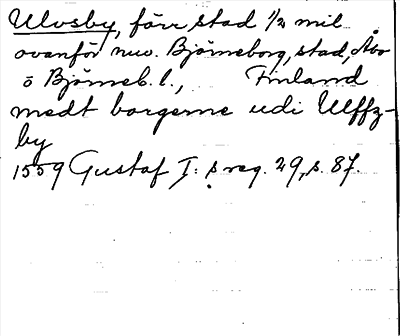 Ulvsby, förr stad 1/2 mil
ovanför nuv. Björneborg, stad, Åbo
o Björneb. l., Finland
medt borgerne udi Ulffz-
by
1559 Gustaf I:s reg. 29, s. 87.